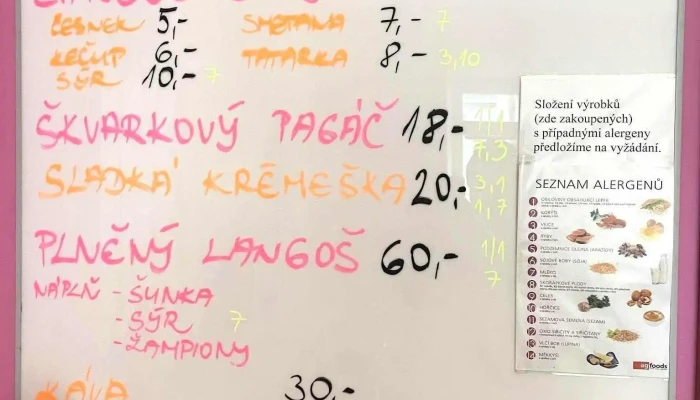 ČESNEK 5,- SMETANA 7,- 7
KEČUP 6,- TATARKA 8,- 3,10
SÝR 10,- 7
ŠKVARKOVÝ PAGÁČ 18,- 1,1
7,3
SLADKÁ KRÉMEŠKA 20,- 3,1
1,7
PLNĚNÝ LANGOŠ 60,- 1,1
7
NÁPLŇ - ŠUNKA
- SÝR 7
- ŽAMPIONY
KÁVA 30,-
Složení výrobků
(zde zakoupených)
s případnými alergeny
předložíme na vyžádání.
SEZNAM ALERGENŮ
1 OBILOVINY OBSAHUJÍCÍ LEPEK
2 KORÝŠI
3 VEJCE
4 RYBY
5 PODZEMNICE OLEJNÁ (ARAŠÍDY)
6 SÓJOVÉ BOBY (SÓJA)
7 MLÉKO
8 SKOŘÁPKOVÉ PLODY
9 CELER
10 HOŘČICE
11 SEZAMOVÁ SEMENA (SEZAM)
12 OXID SIŘIČITÝ A SIŘIČITANY
13 VLČÍ BOB (LUPINA)
14 MĚKKÝŠI
foods